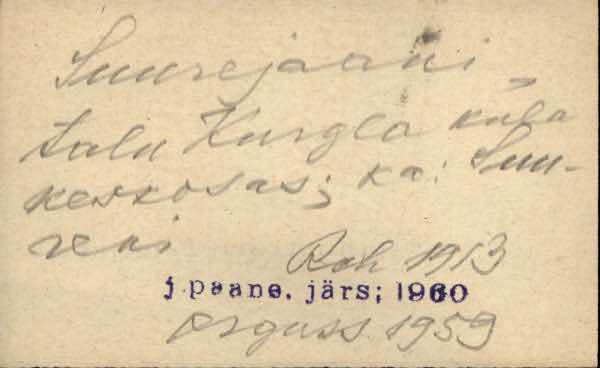 Suurejaani,
talu Kurgla küla
keskosas; ka: Suu-
reni
Roh 1913
j.paane. järs; 1960
Orguss. 1959